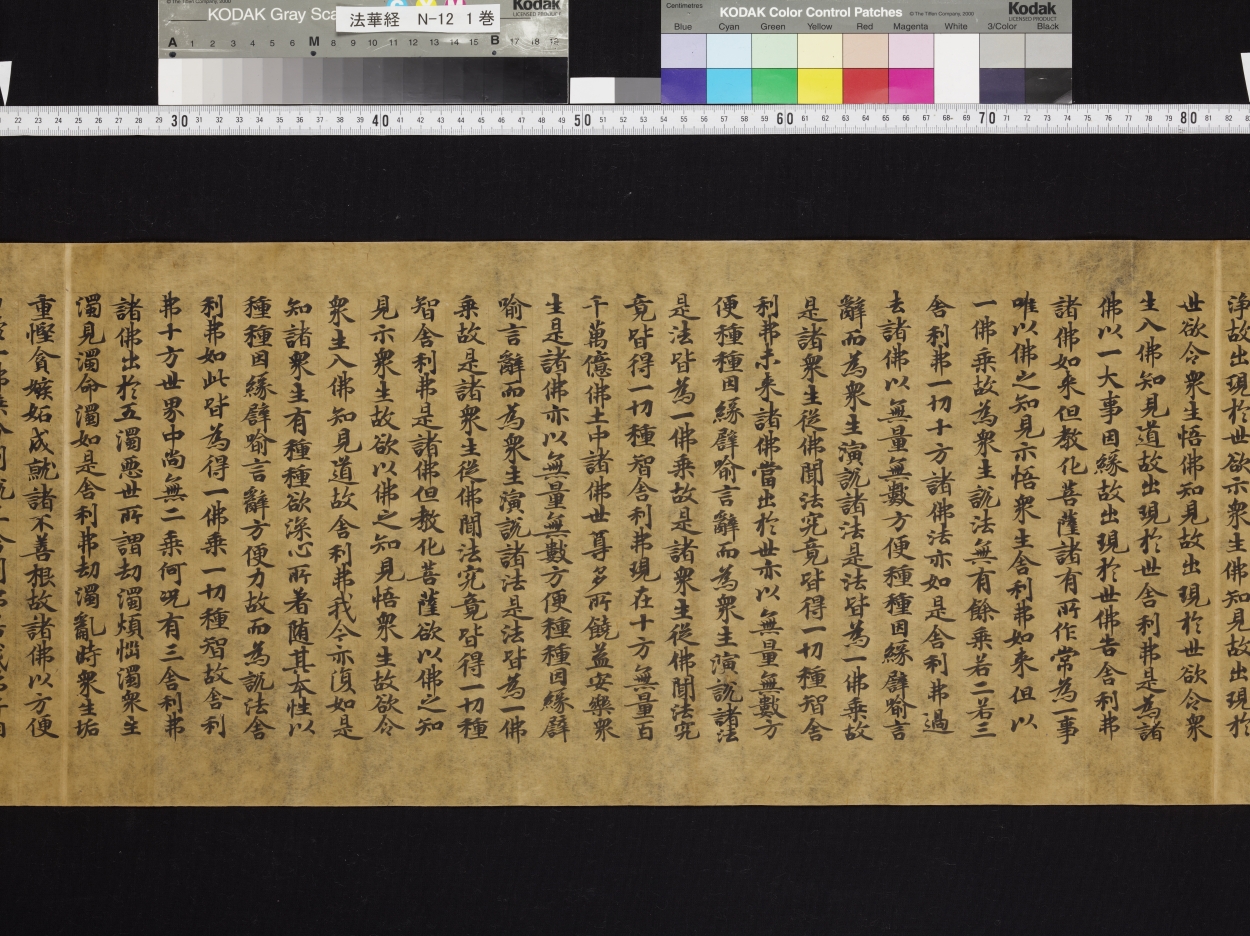 KODAK Gray Sca
Kodak
LICENSED PRODUCT
© The Tiffen Company, 2000
法華経 N-12 1巻
A 1 2 3 4 5 6 M 8 9 10 11 12 13 14 15 B 17 18 19
Centimetres
KODAK Color Control Patches
© The Tiffen Company, 2000
Kodak
LICENSED PRODUCT
Blue Cyan Green Yellow Red Magenta White 3/Color Black
22 23 24 25 26 27 28 29 30 31 32 33 34 35 36 37 38 39 40 41 42 43 44 45 46 47 48 49 50 51 52 53 54 55 56 57 58 59 60 61 62 63 64 65 66 67 68 69 70 71 72 73 74 75 76 77 78 79 80 81 82
淨故出現於世欲示衆生佛知見故出現於
世欲令衆生悟佛知見故出現於世欲令衆
生入佛知見道故出現於世舍利弗是為諸
佛以一大事因緣故出現於世佛告舍利弗
諸佛如来但教化菩薩諸有所作常為一事
唯以佛之知見示悟衆生舍利弗如来但以
一佛乗故為衆生說法無有餘乗若二若三
舍利弗一切十方諸佛法亦如是舍利弗過
去諸佛以無量無數方便種種因緣譬喻言
辭而為衆生演說諸法是法皆為一佛乗故
是諸衆生從佛聞法究竟皆得一切種智舍
利弗未来諸佛當出於世亦以無量無數方
便種種因緣譬喻言辭而為衆生演說諸法
是法皆為一佛乗故是諸衆生從佛聞法究
竟皆得一切種智舍利弗現在十方無量百
千萬億佛土中諸佛世尊多所饒益安樂衆
生是諸佛亦以無量無數方便種種因緣譬
喻言辭而為衆生演說諸法是法皆為一佛
乗故是諸衆生從佛聞法究竟皆得一切種
智舍利弗是諸佛但教化菩薩欲以佛之知
見示衆生故欲以佛之知見悟衆生故欲令
衆生入佛知見道故舍利弗我今亦復如是
知諸衆生有種種欲深心所著随其本性以
種種因緣譬喻言辭方便力故而為說法舍
利弗如此皆為得一佛乗一切種智故舍利
弗十方世界中尚無二乗何况有三舍利弗
諸佛出於五濁悪世所謂劫濁煩惱濁衆生
濁見濁命濁如是舍利弗劫濁亂時衆生垢
重慳貪嫉妬成就諸不善根故諸佛以方便